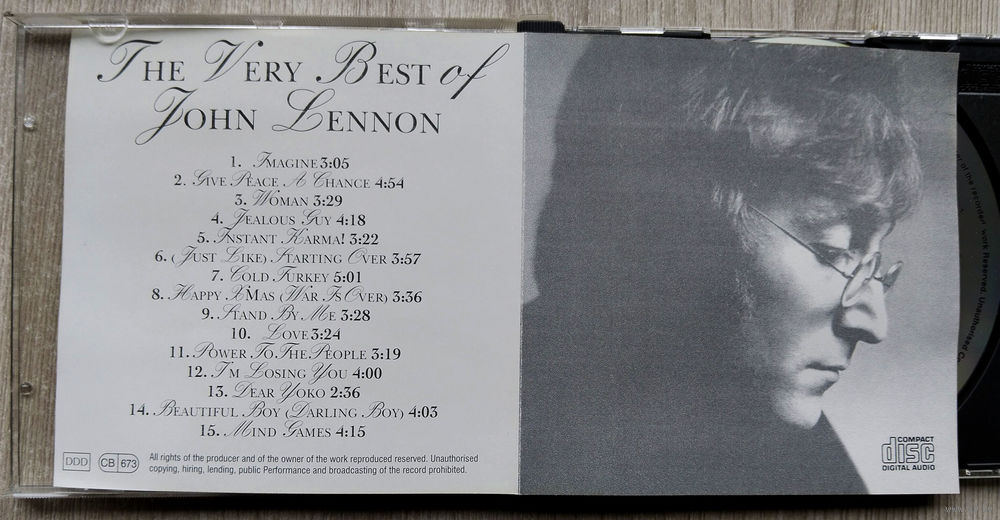 The Very Best of
John Lennon
1. Imagine 3:05
2. Give Peace A Chance 4:54
3. Woman 3:29
4. Jealous Guy 4:18
5. Instant Karma! 3:22
6. (Just Like) Starting Over 3:57
7. Cold Turkey 5:01
8. Happy X'Mas (War Is Over) 3:36
9. Stand By Me 3:28
10. Love 3:24
11. Power To The People 3:19
12. I'm Losing You 4:00
13. Dear Yoko 2:36
14. Beautiful Boy (Darling Boy) 4:03
15. Mind Games 4:15
DDD
CB 673
All rights of the producer and of the owner of the work reproduced reserved. Unauthorised
copying, hiring, lending, public Performance and broadcasting of the record prohibited.
COMPACT
disc
DIGITAL AUDIO
of the recorded work Reserved. Unauthorised